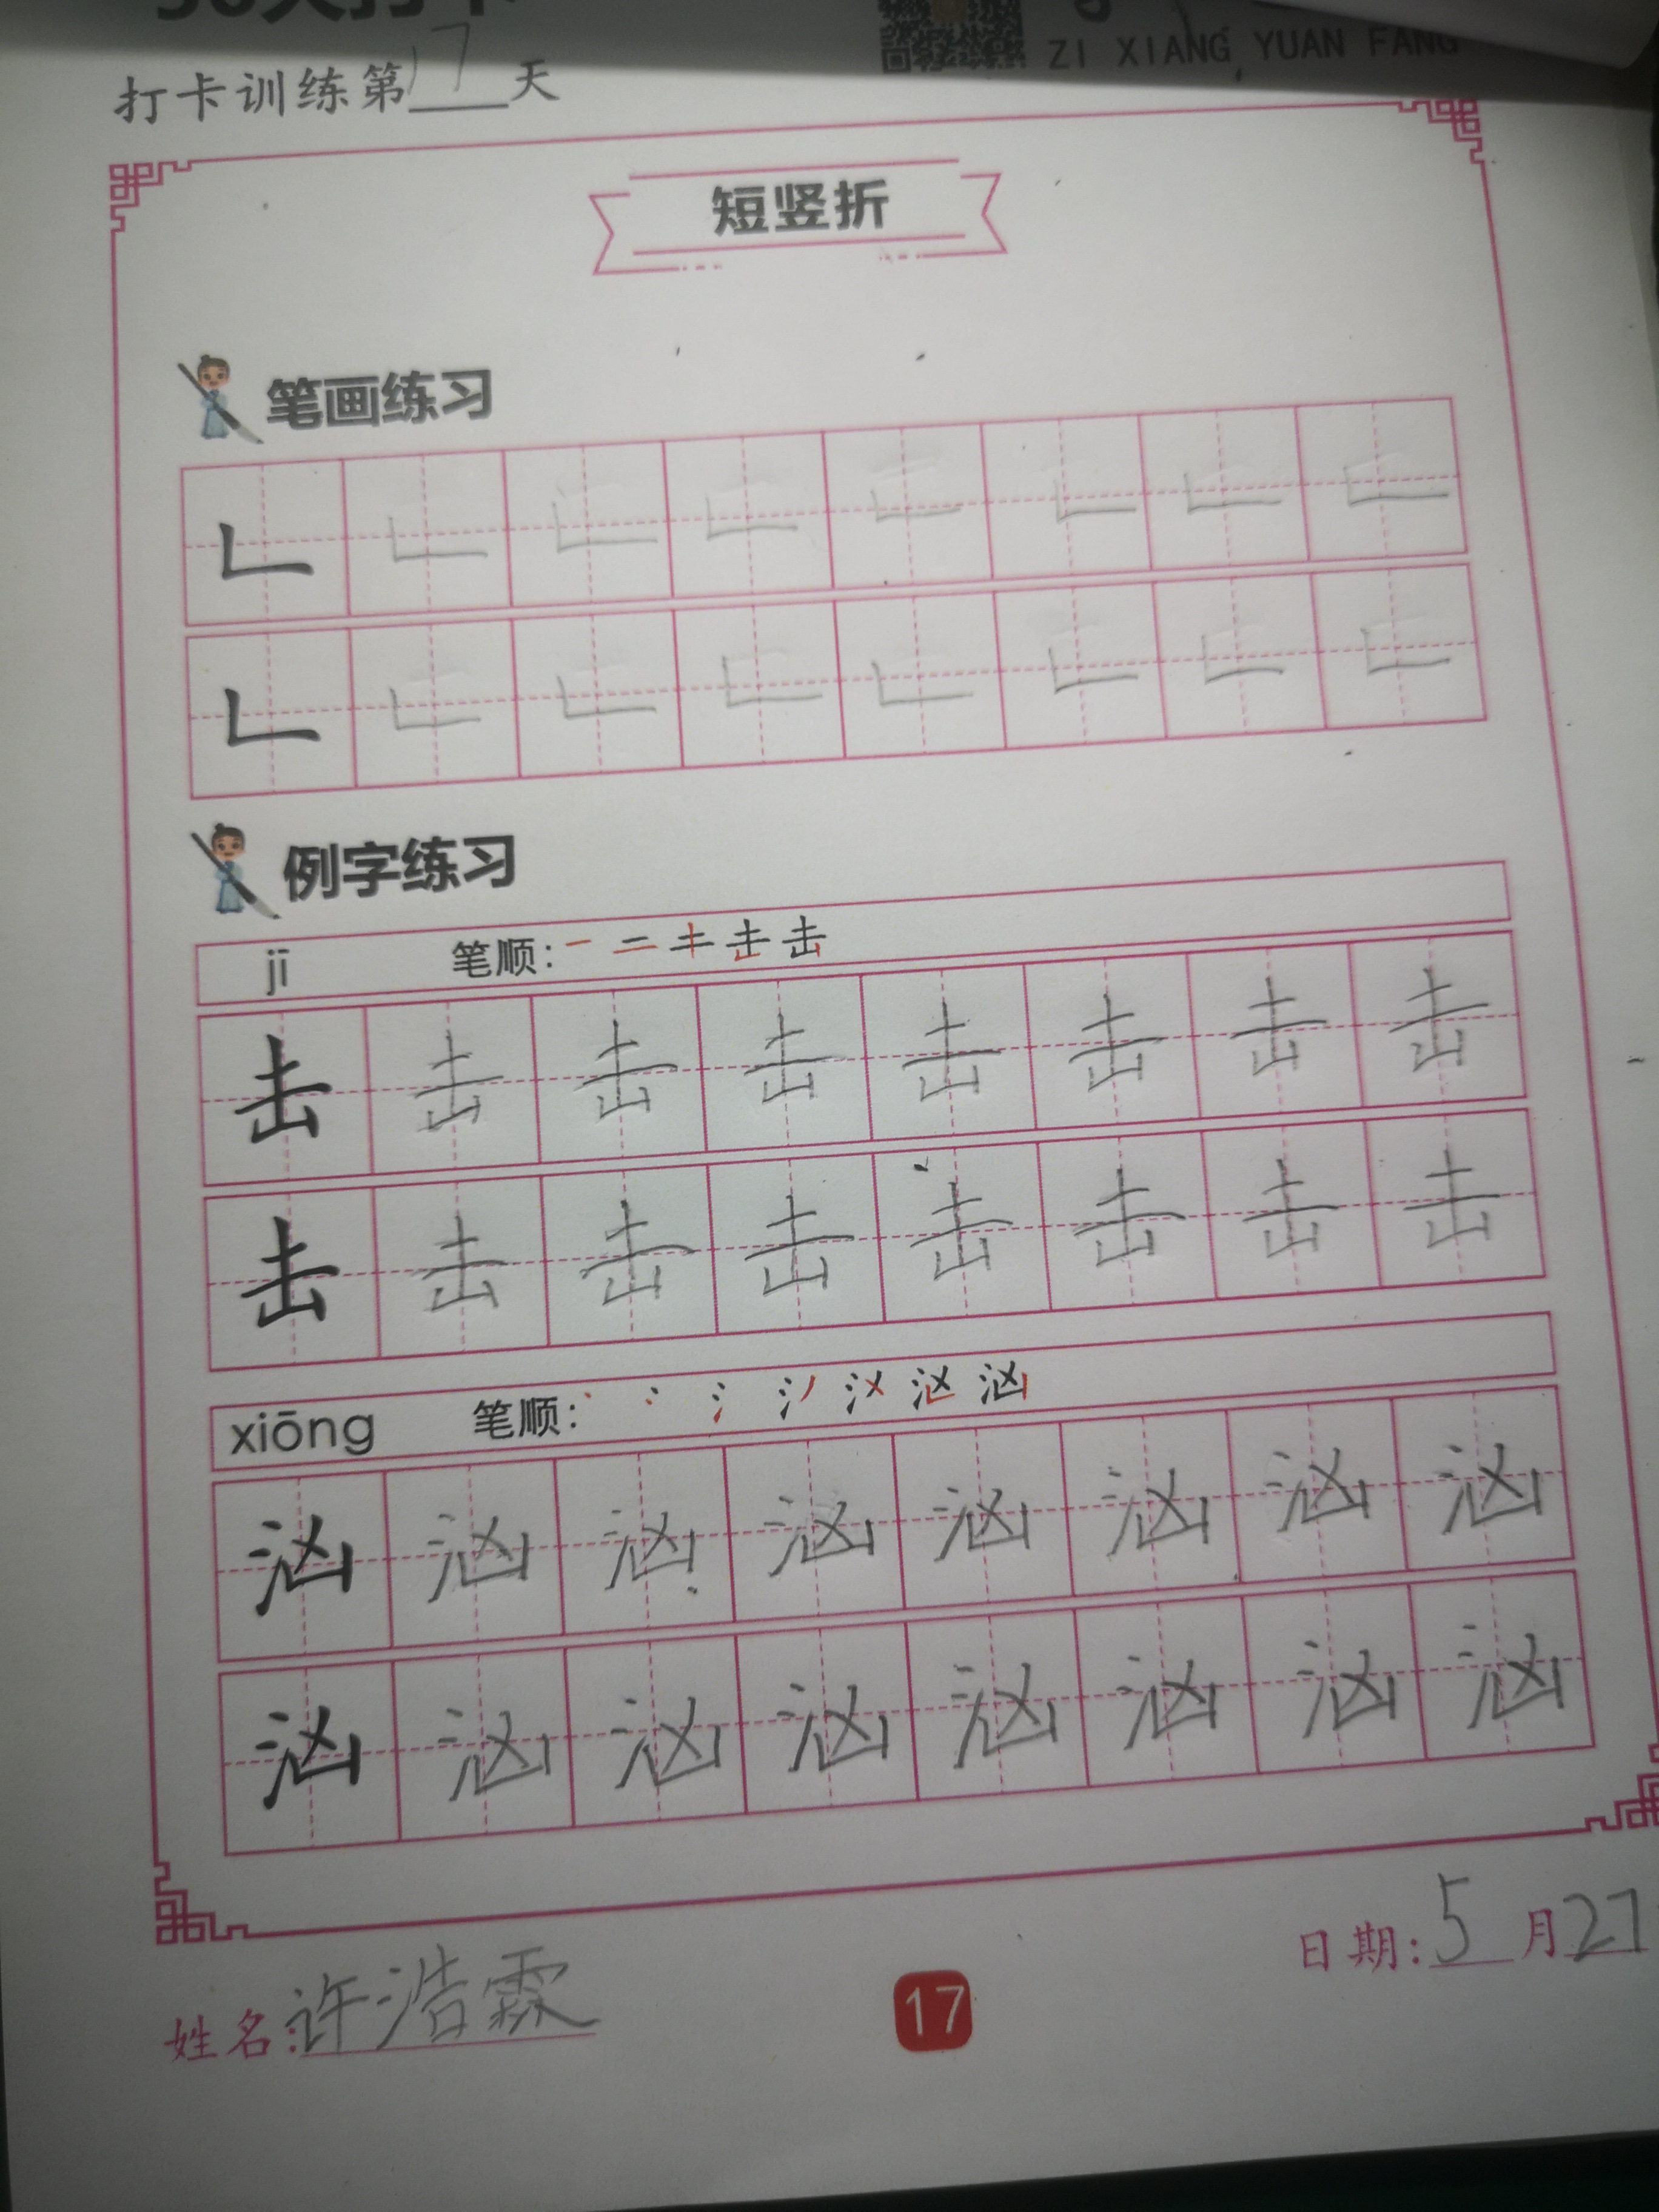 ZI XIANG YUAN FANG
打卡训练第17天
短竖折
笔画练习
例字练习
jī 笔顺：
击 击 击 击 击 击 击 击
击 击 击 击 击 击 击 击
xiōng 笔顺：
汹 汹 汹 汹 汹 汹 汹 汹
汹 汹 汹 汹 汹 汹 汹 汹
日期：5月27
姓名：许浩霖
17